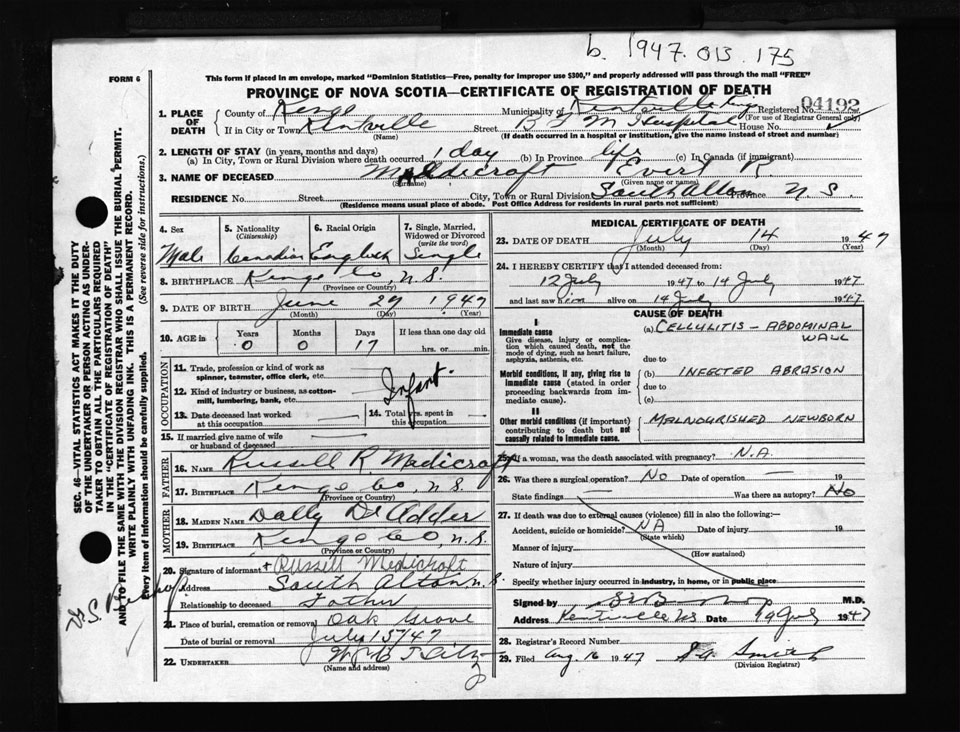 b. 1947. 013. 175
FORM 6
This form if placed in an envelope, marked "Dominion Statistics—Free, penalty for improper use $300," and properly addressed will pass through the mail "FREE"
PROVINCE OF NOVA SCOTIA—CERTIFICATE OF REGISTRATION OF DEATH
1. PLACE OF DEATH
County of Kings Municipality of Kentville Kings Registered No. 04192
(For use of Registrar General only)
If in City or Town Kentville Street B F M Hospital House No.
(Name) (If death occurred in a hospital or institution, give the name instead of street and number)
2. LENGTH OF STAY (in years, months and days)
(a) In City, Town or Rural Division where death occurred 1 day (b) In Province life (c) In Canada (if immigrant)
3. NAME OF DECEASED Medicraft Evert R.
(Surname) (Given name or names)
RESIDENCE No. Street City, Town or Rural Division South Alton Province N.S.
(Residence means usual place of abode. Post Office Address for residents in rural parts not sufficient)
4. Sex Male
5. Nationality (Citizenship) Canadian
6. Racial Origin English
7. Single, Married, Widowed or Divorced (write the word) Single
8. BIRTHPLACE Kings Co, N.S.
(Province or Country)
9. DATE OF BIRTH June 27 1947
(Month) (Day) (Year)
10. AGE in Years Months Days If less than one day old
0 0 17 hrs. or min.
OCCUPATION
11. Trade, profession or kind of work as spinner, teamster, office clerk, etc.
12. Kind of industry or business, as cotton-mill, lumbering, bank, etc.
Infant.
13. Date deceased last worked at this occupation
14. Total yrs. spent in this occupation
15. If married give name of wife or husband of deceased
FATHER
16. NAME Russell R. Medicraft
17. BIRTHPLACE Kings Co, N.S.
(Province or Country)
MOTHER
18. MAIDEN NAME Dolly De Adder
19. BIRTHPLACE Kings Co, N.S.
(Province or Country)
20. Signature of informant + Russill Medicraft
Address South Alton N.S.
Relationship to deceased Father
21. Place of burial, cremation or removal Oak Grove
Date of burial or removal July 15/47
22. UNDERTAKER
(Name and address)
MEDICAL CERTIFICATE OF DEATH
23. DATE OF DEATH July 14 1947
(Month) (Day) (Year)
24. I HEREBY CERTIFY that I attended deceased from:
12 July 1947 to 14 July 1947
and last saw him alive on 14 July 1947
CAUSE OF DEATH
I
Immediate cause
Give disease, injury or complication which caused death, not the mode of dying, such as heart failure, asphyxia, asthenia, etc.
(a) CELLULITIS – ABDOMINAL WALL
due to
Morbid conditions, if any, giving rise to immediate cause (stated in order proceeding backwards from immediate cause).
(b) INFECTED ABRASION
due to
(c)
II
Other morbid conditions (if important) contributing to death but not causally related to immediate cause.
MALNOURISHED NEWBORN
25. If a woman, was the death associated with pregnancy? N.A.
26. Was there a surgical operation? No Date of operation 19
State findings Was there an autopsy? No
27. If death was due to external causes (violence) fill in also the following:—
Accident, suicide or homicide? NA Date of injury 19
(State which)
Manner of injury
(How sustained)
Nature of injury
Specify whether injury occurred in industry, in home, or in public place
Signed by M.D.
Address Kentville NS Date 19 July 1947
28. Registrar's Record Number
29. Filed Aug. 16 1947 Smith
(Division Registrar)
SEC. 46—VITAL STATISTICS ACT MAKES IT THE DUTY OF THE UNDERTAKER OR PERSON ACTING AS UNDERTAKER TO OBTAIN ALL THE PARTICULARS REQUIRED IN THE "CERTIFICATE OF REGISTRATION OF DEATH" AND TO FILE THE SAME WITH THE DIVISION REGISTRAR WHO SHALL ISSUE THE BURIAL PERMIT.
WRITE PLAINLY WITH UNFADING INK. THIS IS A PERMANENT RECORD.
Every item of information should be carefully supplied. (See reverse side for instructions.)